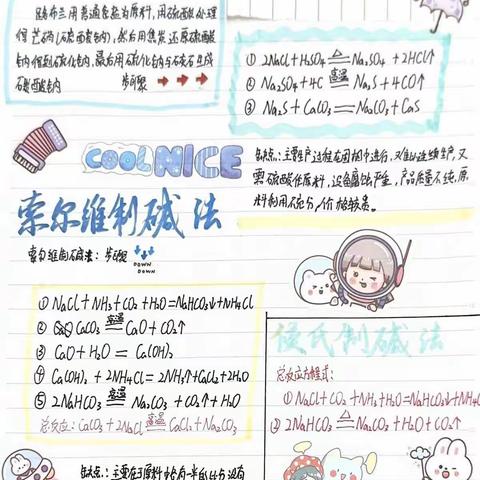 路布兰用普通食盐为原料,用硫酸处理
得芒硝(硫酸钠),然后用焦炭还原硫酸
钠得到硫化钠,最后用硫化钠与石灰石生成
碳酸钠 步骤
① 2NaCl+H₂SO₄ △ Na₂SO₄ +2HCl↑
② Na₂SO₄+4C 高温 Na₂S +4CO↑
③ Na₂S+CaCO₃ = Na₂CO₃+CaS
COOL NICE
缺点:主要生产过程在固相中进行,难以连续生产,又
需硫酸作原料,设备腐蚀严重,产品质量不纯,原
料利用不充分,价格较贵。
索尔维制碱法
索尔维制碱法:步骤
DOWN
DOWN
① NaCl+NH₃+CO₂+H₂O=NaHCO₃↓+NH₄Cl
② CaCO₃ 高温 CaO+CO₂↑
③ CaO+H₂O = Ca(OH)₂
④ Ca(OH)₂ +2NH₄Cl=2NH₃↑+CaCl₂+2H₂O
⑤ 2NaHCO₃ 高温 Na₂CO₃ +CO₂↑+H₂O
总反应:CaCO₃+2NaCl 高温 CaCl₂+Na₂CO₃
侯氏制碱法
总反应方程式:
① NaCl+CO₂+NH₃+H₂O=NaHCO₃↓+NH₄
② 2NaHCO₃ △ Na₂CO₃+H₂O+CO₂↑
缺点:主要在于原料中各有一半的成分没有